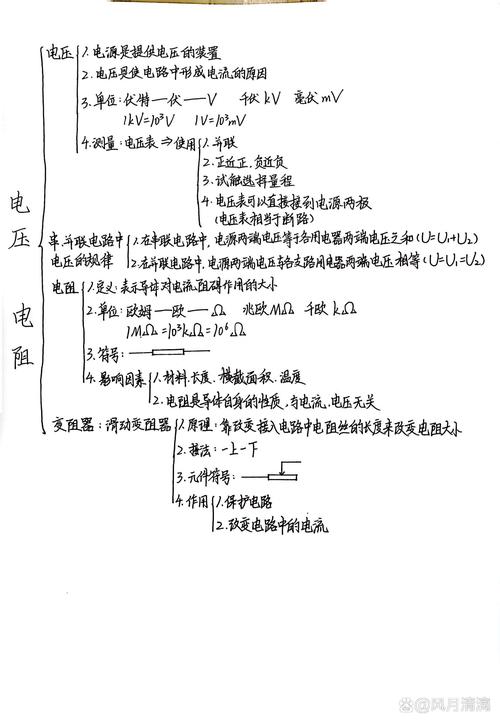 电压 电阻
电压
1.电源是提供电压的装置
2.电压是使电路中形成电流的原因
3.单位:伏特—伏—V 千伏kV 毫伏mV
1kV=10³V 1V=10³mV
4.测量:电压表⇒使用
1.并联
2.正近正,负近负
3.试触选择量程
4.电压表可以直接接到电源两极
(电压表相当于断路)
串、并联电路中电压的规律
1.在串联电路中,电源两端电压等于各用电器两端电压之和(U=U₁+U₂)
2.在并联电路中,电源两端电压与各支路用电器两端电压相等(U=U₁=U₂)
电阻
1.定义:表示导体对电流阻碍作用的大小
2.单位:欧姆—欧—Ω 兆欧MΩ 千欧kΩ
1MΩ=10³kΩ=10⁶Ω
3.符号:
4.影响因素
1.材料、长度、横截面积、温度
2.电阻是导体自身的性质,与电流、电压无关
变阻器:滑动变阻器
1.原理:靠改变接入电路中电阻丝的长度来改变电阻大小
2.接法:一上一下
3.元件符号:
4.作用
1.保护电路
2.改变电路中的电流
@风月清漓